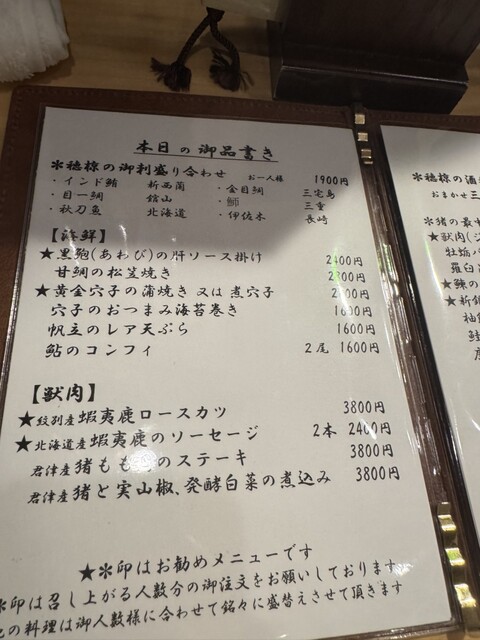 本日の御品書き
✻穂椋の御刺盛り合わせ お一人様 1900円
・インド鮪 新西蘭 ・金目鯛 三宅島
・目一鯛 舘山 ・鰤 三重
・秋刀魚 北海道 ・伊佐木 長崎
【海鮮】
★黒鮑(あわび)の肝ソース掛け 2400円
甘鯛の松笠焼き
★黄金穴子の蒲焼き又は煮穴子
穴子のおつまみ海苔巻き 1600円
帆立のレア天ぷら 1600円
鮎のコンフィ 2尾 1600円
【獣肉】
★紋別産蝦夷鹿ロースカツ 3800円
★北海道産蝦夷鹿のソーセージ 2本 2400円
君津産猪もも のステーキ 3800円
君津産猪と実山椒、発酵白菜の煮込み 3800円
★✻印はお勧めメニューです
✻印は召し上がる人数分の御注文をお願いしております
の料理は御人数様に合わせて銘々に盛替えさせて頂きます
✻穂椋の酒
おまかせ三
✻猪の最
★獣肉(ジ
牡蛎
羅臼
★鰊の
★新銀
柚
鮭